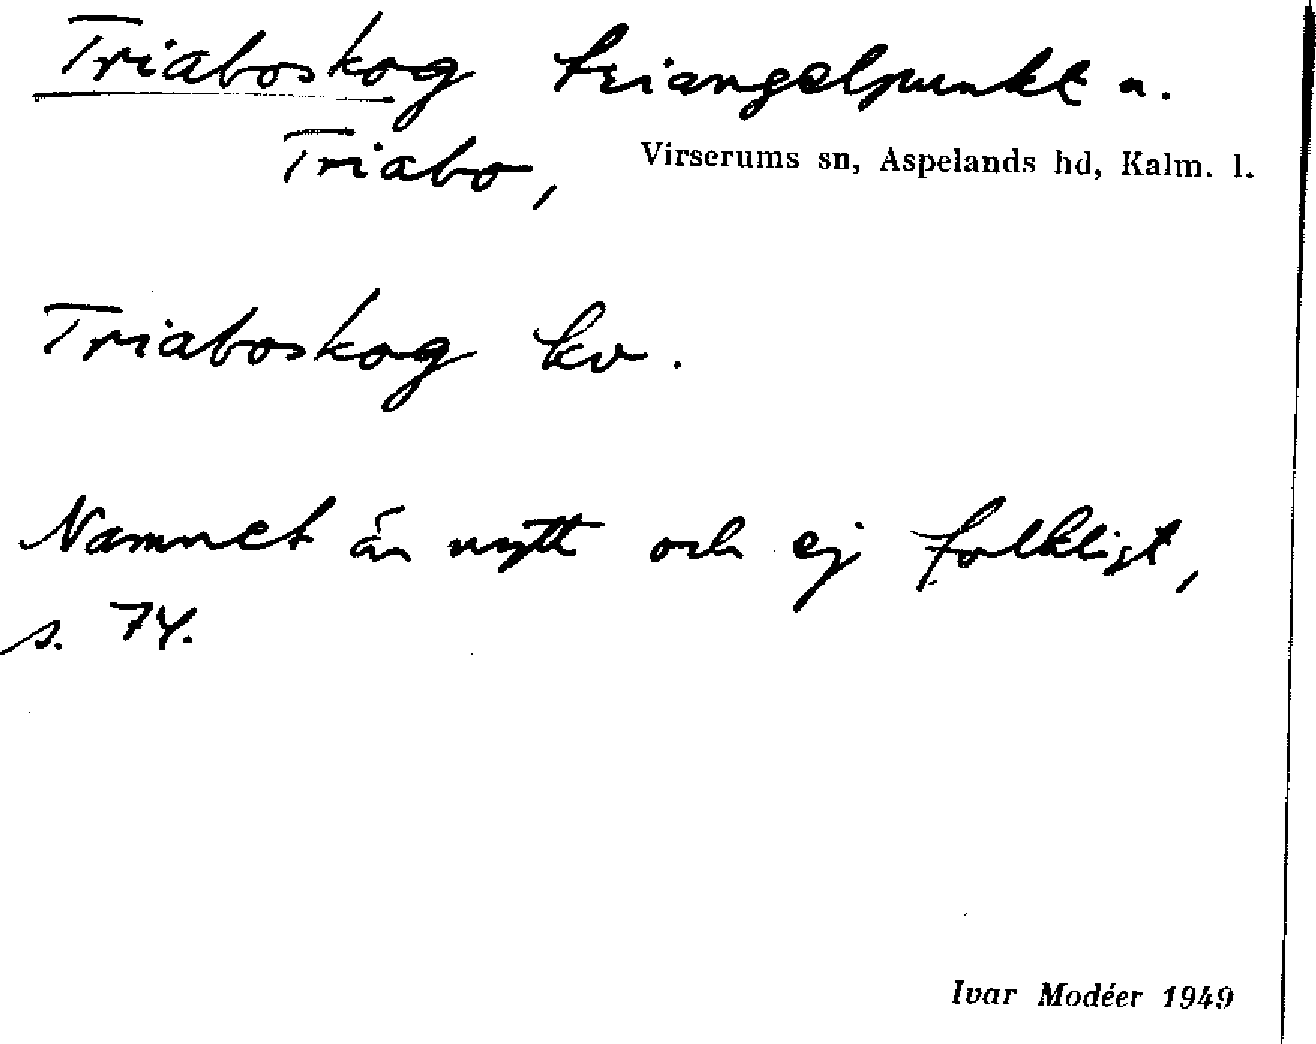 Triaboskog triangelpunkt n.
Triabo, Virserums sn, Aspelands hd, Kalm. l.
Triaboskog kv.
Namnet är nytt och ej folkligt,
s. 74.
Ivar Modéer 1949